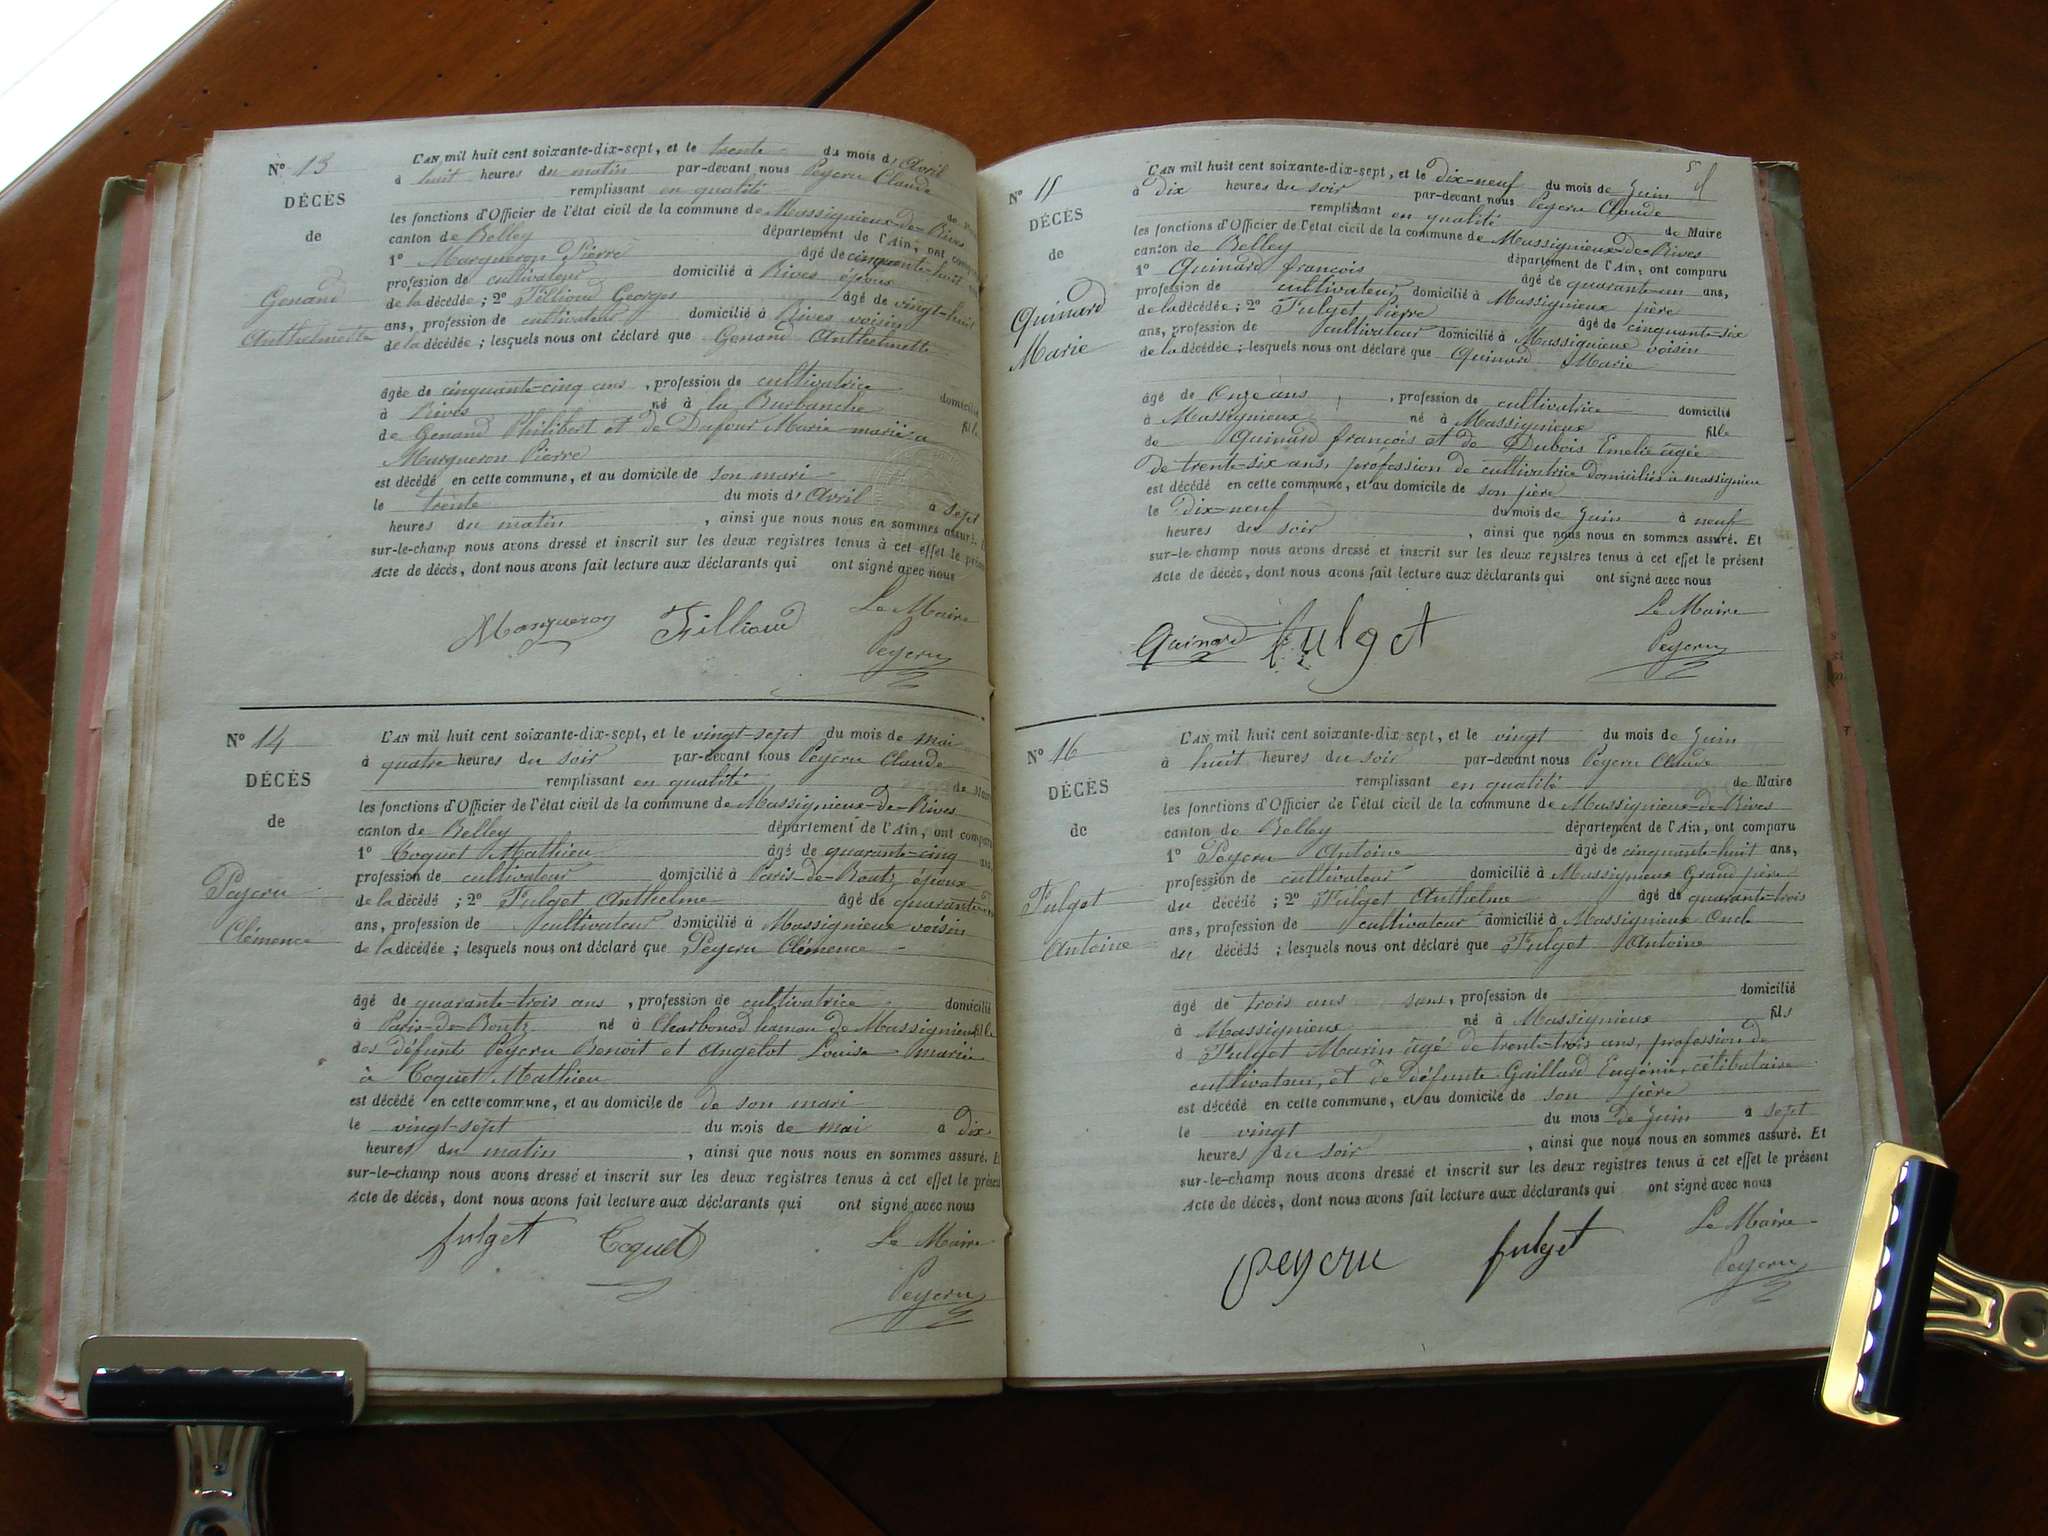 N° 13
DÉCÈS
de
Genand
Anthelmette
L'AN mil huit cent soixante-dix-sept, et le trente du mois d'Avril
à huit heures du matin par-devant nous Peycru Claude
remplissant en qualité de
les fonctions d'Officier de l'état civil de la commune de Massignieux-de-Rives
canton de Belley département de l'Ain, ont
1° Margueron Pierre âgé de cinquante-huit
profession de cultivateur domicilié à Rives époux
de la décédée ; 2° Fillioud Georges âgé de vingt-huit
ans, profession de cultivateur domicilié à Rives voisin
de la décédée ; lesquels nous ont déclaré que Genand Anthelmette
âgée de cinquante-cinq ans, profession de cultivatrice domicilié
à Rives né à la Burbanche fille
de Genand Philibert et de Dufour Marie mariée a
Margueron Pierre
est décédé en cette commune, et au domicile de son mari
le trente du mois d'Avril à sept
heures du matin, ainsi que nous nous en sommes assuré.
sur-le-champ nous avons dressé et inscrit sur les deux registres tenus à cet effet le
Acte de décès, dont nous avons fait lecture aux déclarants qui ont signé avec nous
Margueron Fillioud Le Maire
Peycru
N° 14
DÉCÈS
de
Peycru
Clémence
L'AN mil huit cent soixante-dix-sept, et le vingt-sept du mois de mai
à quatre heures du soir par-devant nous Peycru Claude
remplissant en qualité de
les fonctions d'Officier de l'état civil de la commune de Massignieux-de-Rives
canton de Belley département de l'Ain, ont comparu
1° Coquet Mathieu âgé de quarante-cinq
profession de cultivateur domicilié à Paris-de-Boutz époux
de la décédé ; 2° Fulget Anthelme âgé de
ans, profession de cultivateur domicilié à Massignieux voisin
de la décédée ; lesquels nous ont déclaré que Peycru Clémence
âgé de quarante-trois ans, profession de cultivatrice domicilié
à Paris-de-Boutz né à Charbonod hameau de Massignieux fille
des défunts Peycru Benoit et Angelot Louise mariée
à Coquet Mathieu
est décédé en cette commune, et au domicile de de son mari
le vingt-sept du mois de mai à dix
heures du matin, ainsi que nous nous en sommes assuré.
sur-le-champ nous avons dressé et inscrit sur les deux registres tenus à cet effet le présent
Acte de décès, dont nous avons fait lecture aux déclarants qui ont signé avec nous
fulget Coquet Le Maire
Peycru
N° 15
DÉCÈS
de
Quinard
Marie
L'AN mil huit cent soixante-dix-sept, et le dix-neuf du mois de Juin
à Dix heures du soir par-devant nous Peycru Claude
remplissant en qualité de Maire
les fonctions d'Officier de l'état civil de la commune de Massignieux-de-Rives
canton de Belley département de l'Ain, ont comparu
1° Quinard françois âgé de quarante-un ans,
profession de cultivateur domicilié à Massignieux père
de la décédée ; 2° Fulget Pierre âgé de cinquante-six
ans, profession de cultivateur domicilié à Massignieux voisin
de la décédée ; lesquels nous ont déclaré que Quinard Marie
âgé de Onze ans, profession de cultivatrice domicilié
à Massignieux né à Massignieux fille
de Quinard françois et de Dubois Emelie agée
de trente-six ans, profession de cultivatrice domiciliés à massignieu
est décédé en cette commune, et au domicile de son père
le dix-neuf du mois de Juin à neuf
heures du soir, ainsi que nous nous en sommes assuré. Et
sur-le-champ nous avons dressé et inscrit sur les deux registres tenus à cet effet le présent
Acte de décès, dont nous avons fait lecture aux déclarants qui ont signé avec nous
Quinard fulget Le Maire
Peycru
N° 16
DÉCÈS
de
Fulget
Antoine
L'AN mil huit cent soixante-dix-sept, et le vingt du mois de Juin
à huit heures du soir par-devant nous Peycru Claude
remplissant en qualité de Maire
les fonctions d'Officier de l'état civil de la commune de Massignieux-de-Rives
canton de Belley département de l'Ain, ont comparu
1° Peycru Antoine âgé de cinquante-huit ans,
profession de cultivateur domicilié à Massignieux Grand père
du décédé ; 2° Fulget Anthelme âgé de quarante-trois
ans, profession de cultivateur domicilié à Massignieux Oncle
du décédé ; lesquels nous ont déclaré que Fulget Antoine
âgé de trois ans sans, profession de domicilié
à Massignieux né à Massignieux fils
d Fulget Marin âgé de trente-trois ans, profession de
cultivateur, et de défunte Gaillard Eugénie, célibataire
est décédé en cette commune, et au domicile de son père
le vingt du mois de Juin à sept
heures du soir, ainsi que nous nous en sommes assuré. Et
sur-le-champ nous avons dressé et inscrit sur les deux registres tenus à cet effet le présent
Acte de décès, dont nous avons fait lecture aux déclarants qui ont signé avec nous
peycru fulget Le Maire
Peycru